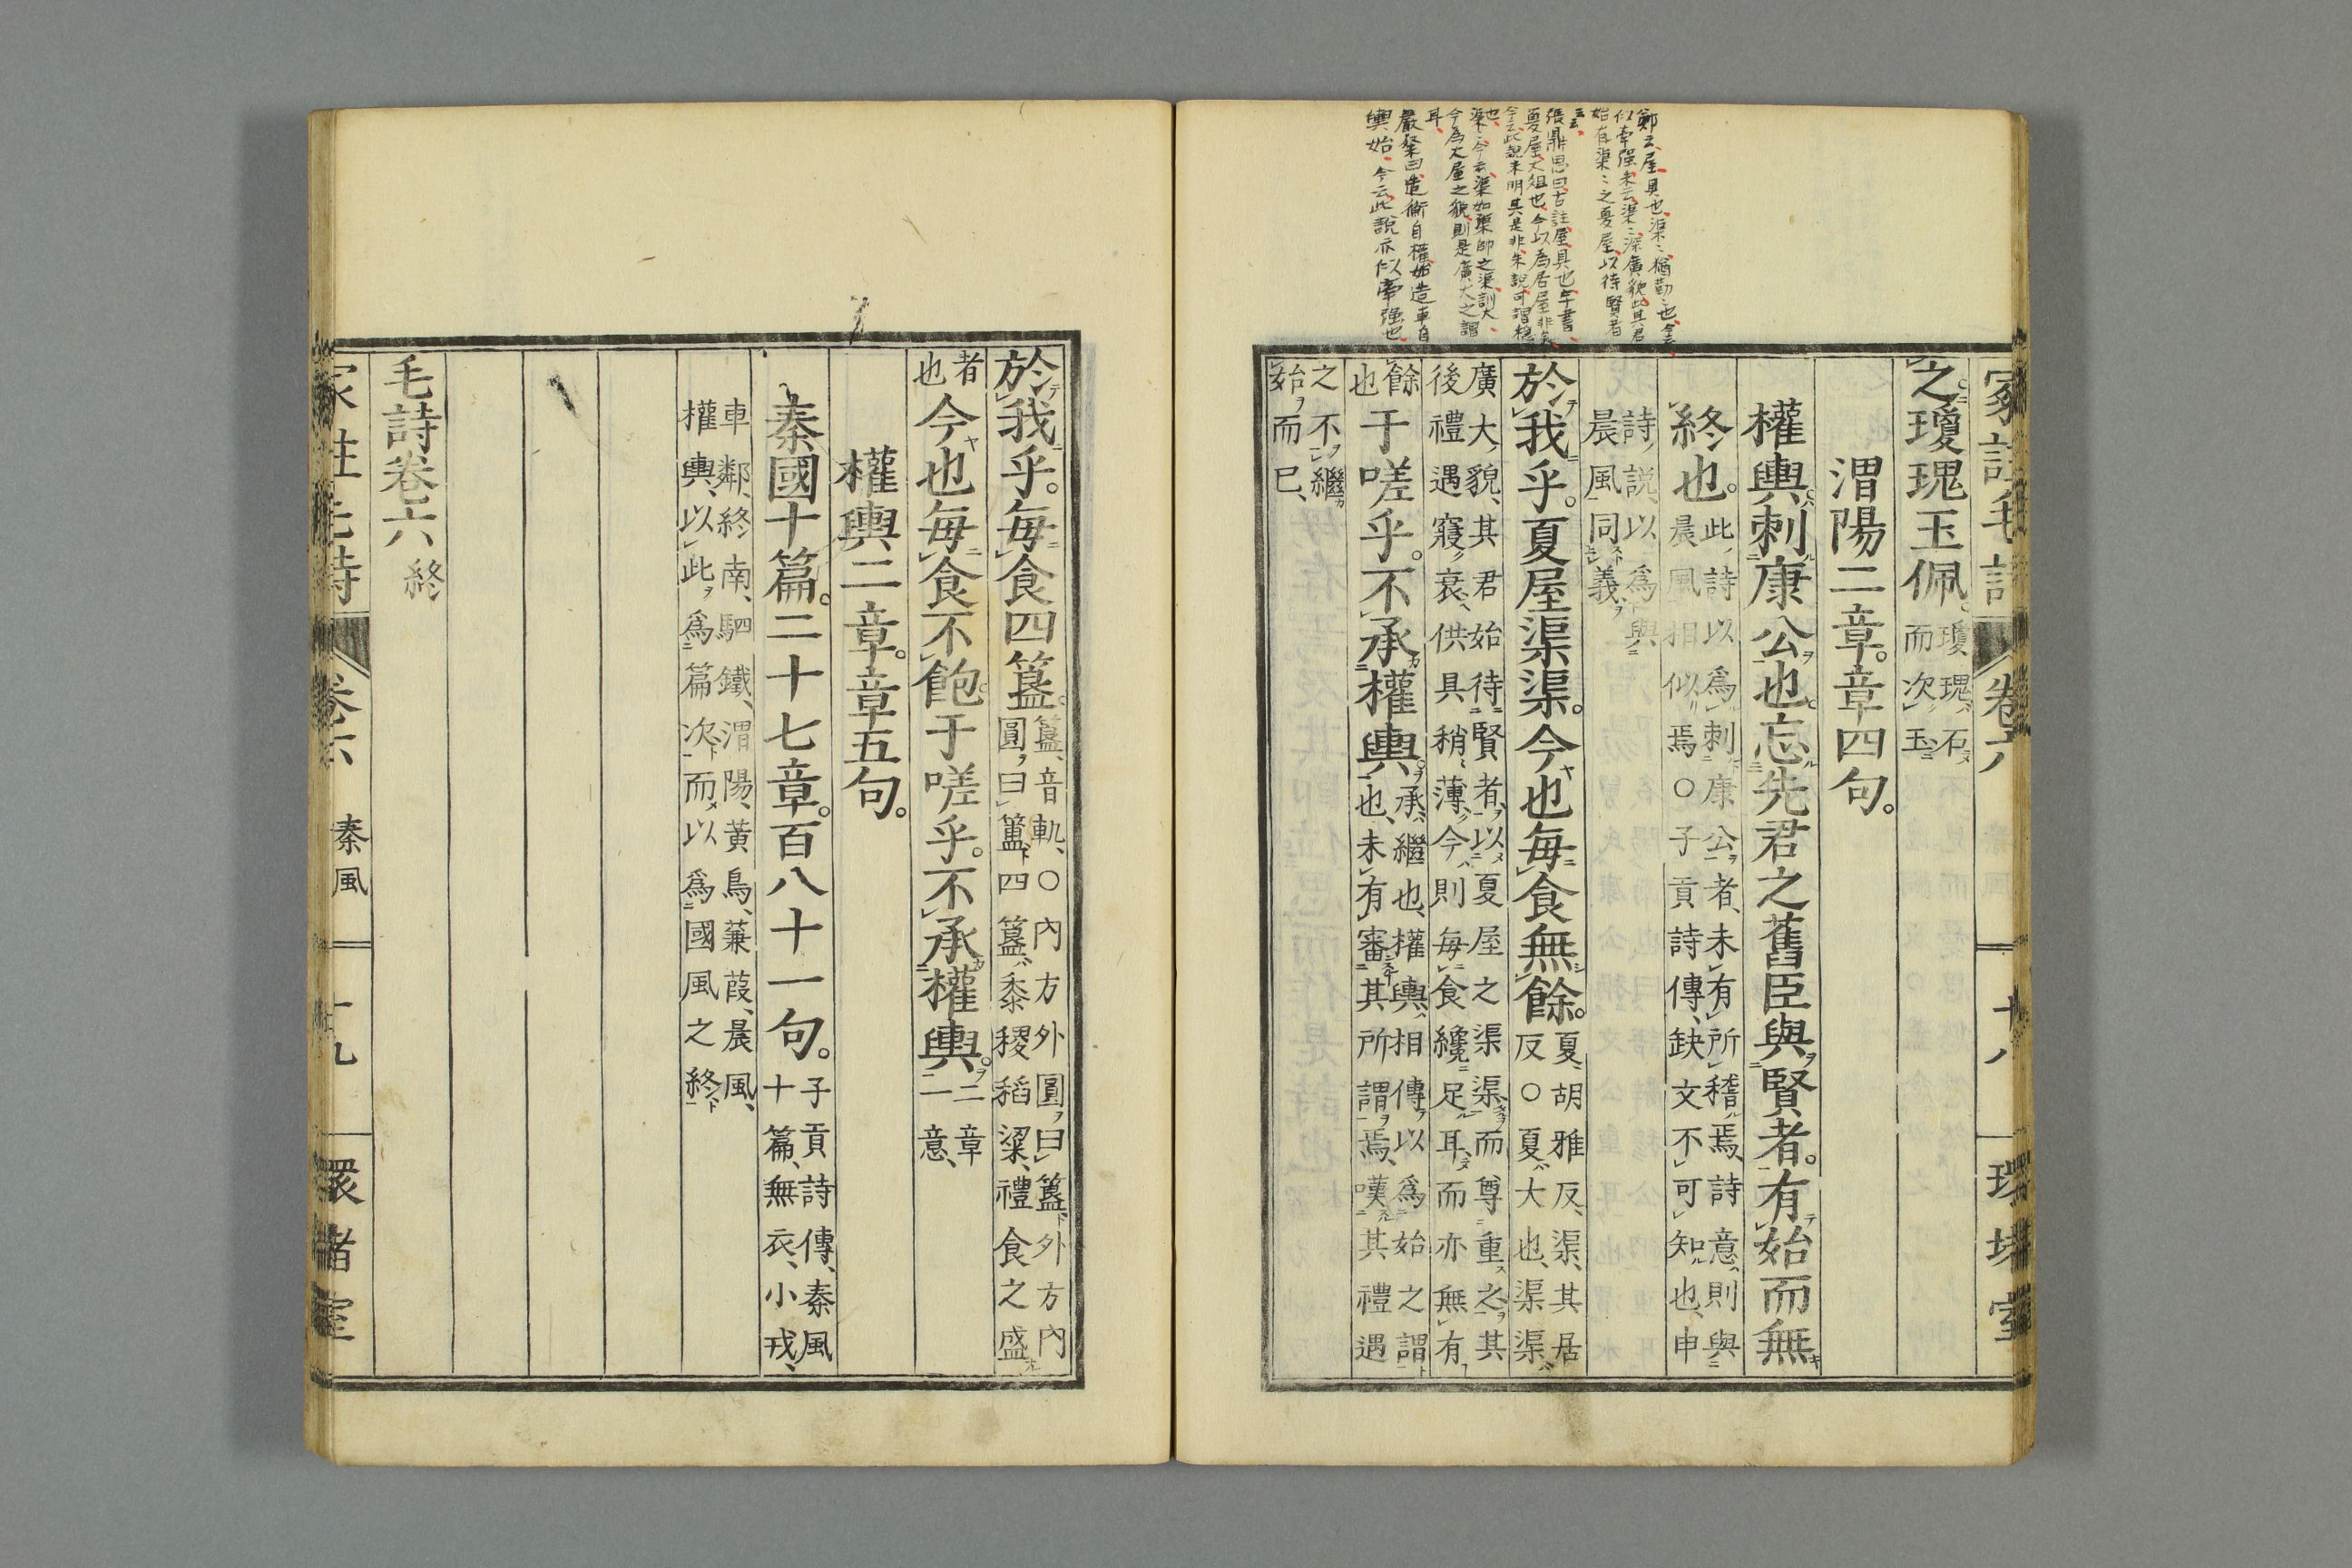 鄭云、屋具也、渠〻、猶勤〻也、今云、
似牽强、朱云、渠〻、深廣貌、此其君
始有渠〻之夏屋、以待賢者
云云、
張鼎思曰、古註、屋具也、
夏屋大俎也、今以為居屋、非矣、
今云、此說未明其是非、朱說可謂穩
也、
渠〻、今云、渠如渠帥之渠、訓大、
今為大屋之貌、則是廣大之謂
耳、
嚴粲曰、造衡自權始、造車自
輿始、今云、此說亦似牽强也、
冢註毛詩 卷六 十八 環堵室
之。瓊瑰玉佩。瓊瑰、石
而次玉
渭陽二章。章四句。
權輿、刺康公也。忘先君之舊臣與賢者。有始而無
終也。此詩以爲刺康公者、未有所稽焉、詩意則與
晨風相似焉〇子貢詩傳、缺文不可知也、申
詩說、以爲與
晨風同義
於我乎。夏屋渠渠。今也每食無餘。夏、胡雅反、渠、其居
反〇夏大也、渠渠
廣大貌、其君始待賢者、以夏屋之渠渠而尊重之其
後禮遇寖衰、供具稍薄、今則每食纔足耳、而亦無有
餘
也
于嗟乎。不承權輿。承、繼也、權輿、相傳以爲始之謂
也、未有審其所謂焉、嘆其禮遇
之不繼
始而已、
於我乎。每食四簋。簋、音軌、〇內方外圓曰簋、外方內
圓曰簠、四簋、黍稷稻粱、禮食之盛
者
也
今也每食不飽。于嗟乎。不承權輿。二章
一意、
權輿二章。章五句。
秦國十篇。二十七章。百八十一句。子貢詩傳、秦風
十篇、無衣、小戎、
車鄰、終南、駟鐵、渭陽、黃鳥、蒹葭、晨風、
權輿、以此爲篇次而以爲國風之終
毛詩卷六 終
冢註毛詩 卷六 秦風 十九 環堵室